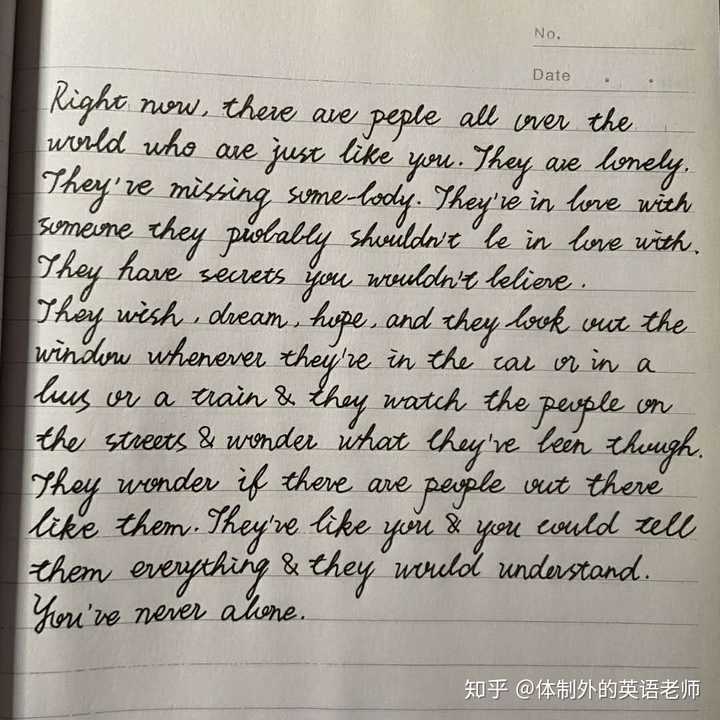 No.
Date . .
Right now, there are peple all over the
world who are just like you. They are lonely.
They've missing some-body. They're in love with
someone they probably shouldn't be in love with.
They have secrets you wouldn't believe.
They wish, dream, hope, and they look out the
window whenever they're in the car or in a
bus or a train & they watch the people on
the streets & wonder what they've been though.
They wonder if there are people out there
like them. They've like you & you could tell
them everything & they would understand.
You've never alone.
知乎 @体制外的英语老师